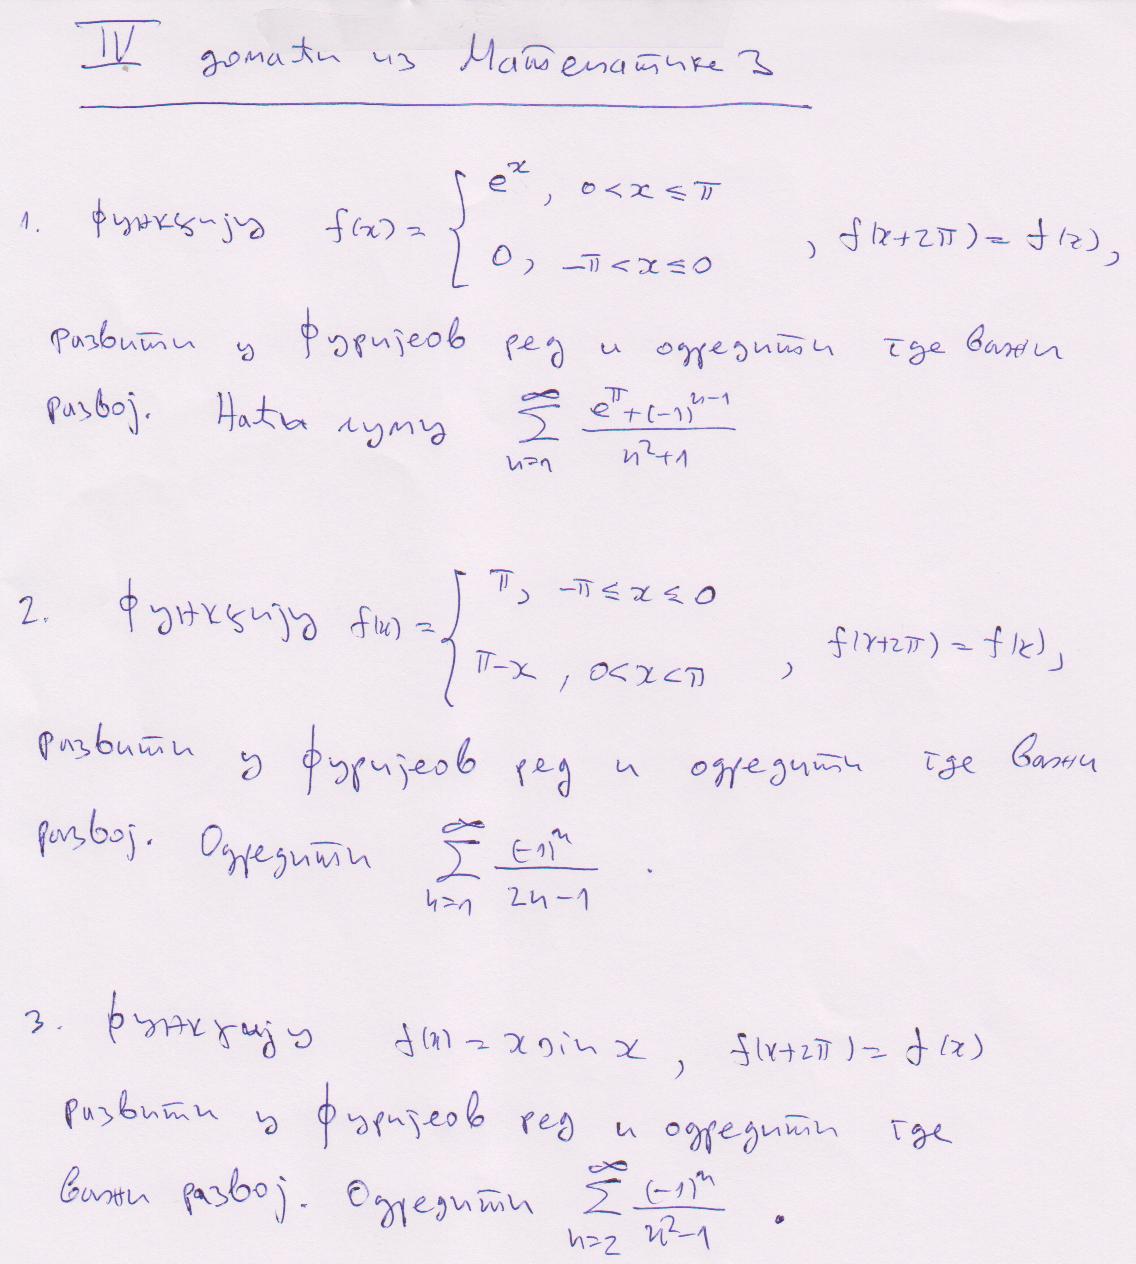 IV домаћи из Математике 3
1. Функцију f(x) = { e^x, 0<x≤π ; 0, -π<x≤0 , f(x+2π) = f(x),
развити у Фуријеов ред и одредити где важи
развој. Наћи суму ∑_{n=1}^{∞} (e^π+(-1)^{n-1})/(n²+1)
2. Функцију f(x) = { π, -π≤x≤0 ; π-x, 0<x<π , f(x+2π) = f(x),
развити у Фуријеов ред и одредити где важи
развој. Одредити ∑_{n=1}^{∞} (-1)^n/(2n-1) .
3. Функцију f(x) = x sin x, f(x+2π) = f(x)
развити у Фуријеов ред и одредити где
важи развој. Одредити ∑_{n=2}^{∞} (-1)^n/(n²-1) .